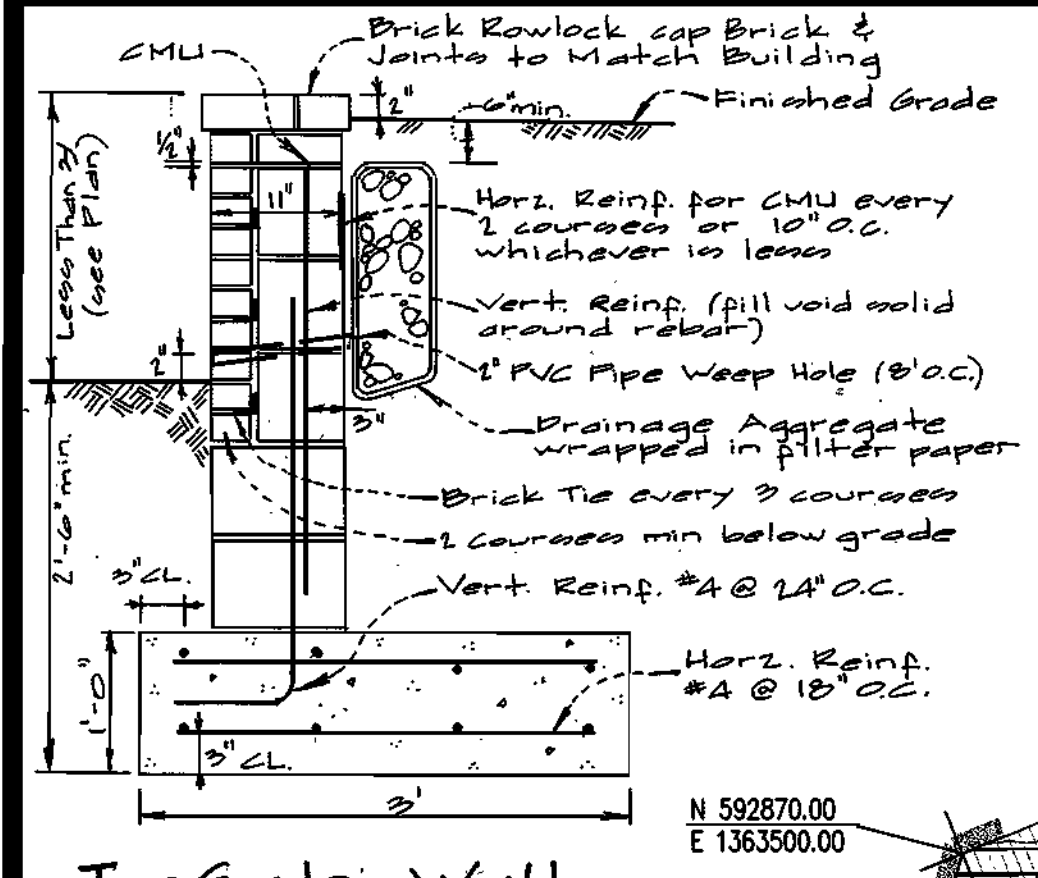 CMU
Brick Rowlock cap Brick &
Joints to Match Building
2"
6" min.
Finished Grade
1/2"
11"
Less Than 3'
(see Plan)
Horz. Reinf. for CMU every
2 courses or 10" O.C.
whichever is less
Vert. Reinf. (fill void solid
around rebar)
2"
2" PVC Pipe Weep Hole (8' O.C.)
3"
Drainage Aggregate
wrapped in filter paper
Brick Tie every 3 courses
2 courses min below grade
2'-6" min.
3" CL.
Vert. Reinf. #4 @ 24" O.C.
1'-0"
Horz. Reinf.
#4 @ 18" O.C.
3" CL.
3'
N 592870.00
E 1363500.00